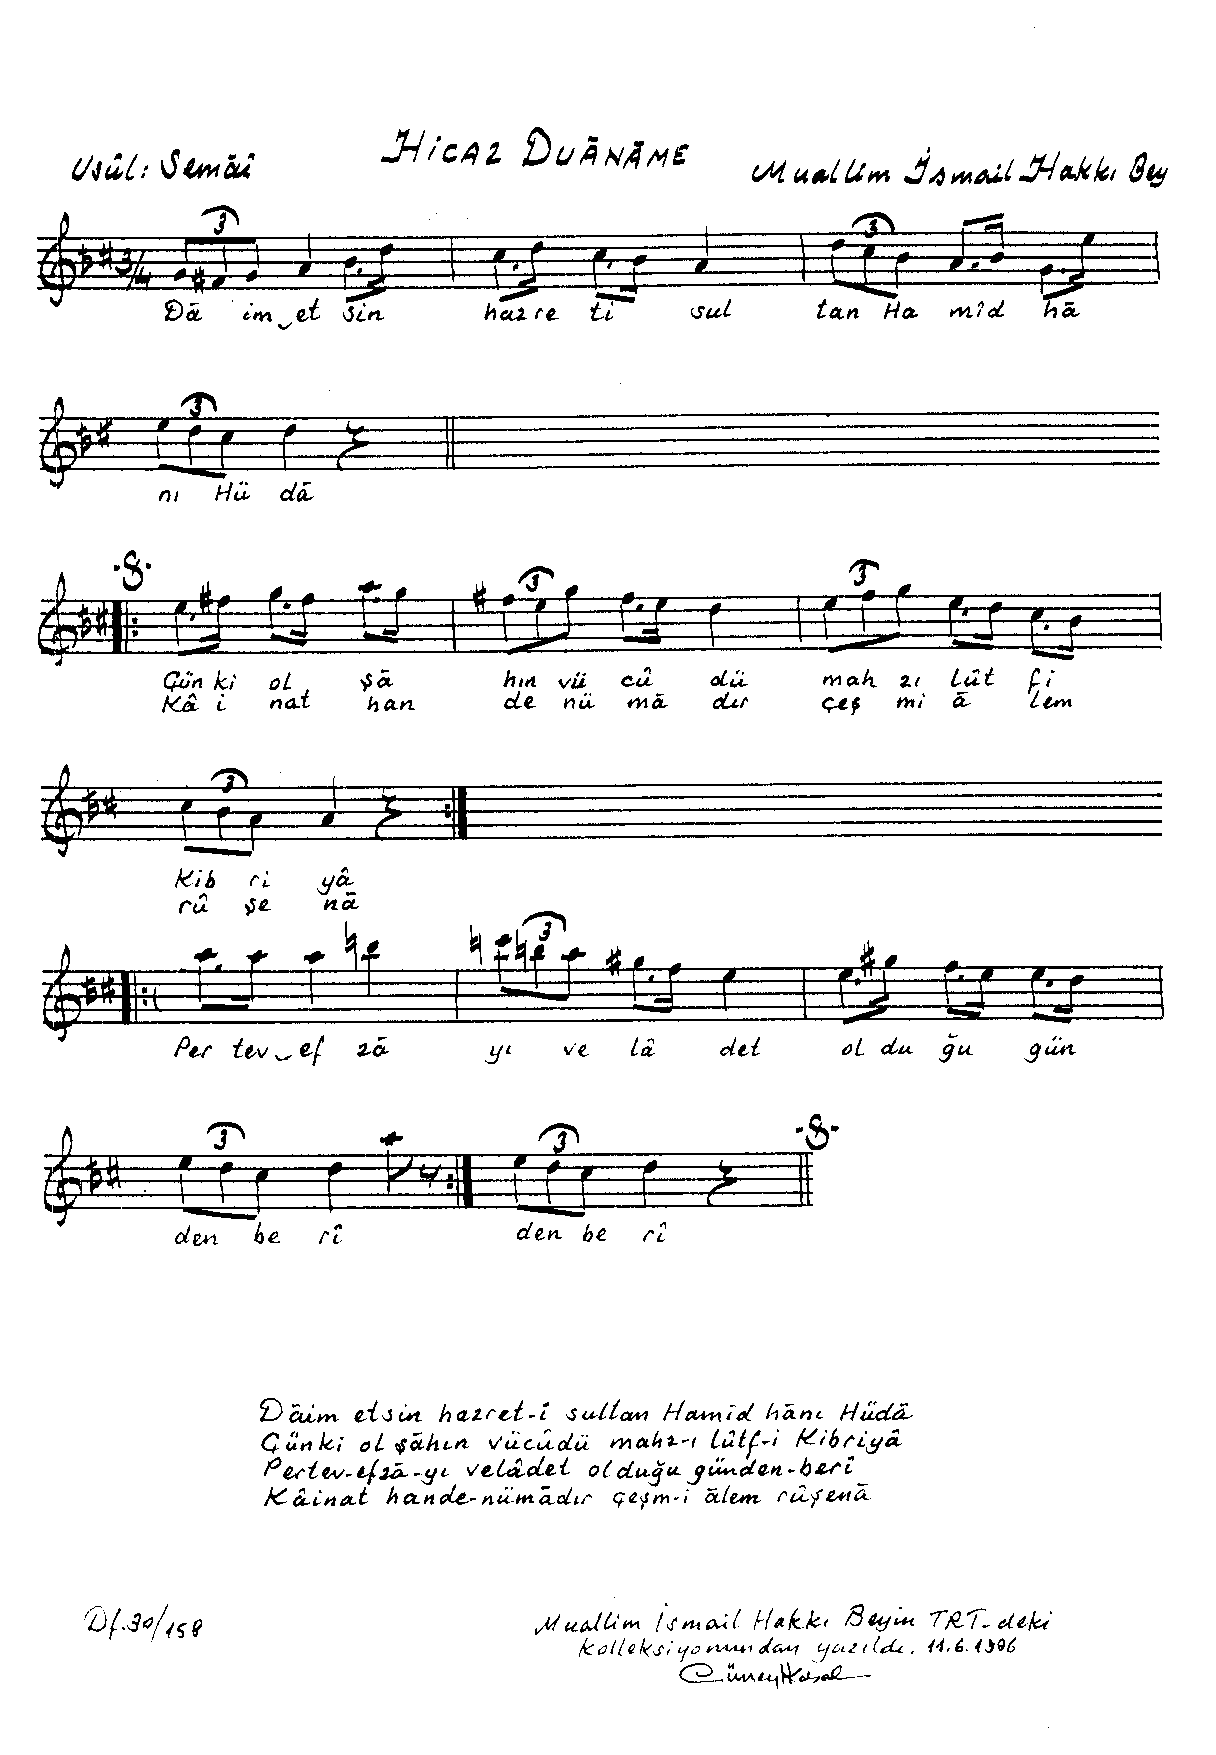 Hicaz Duânâme
Usûl: Semâî
Muallim İsmail Hakkı Bey
3 3
3/4
Dâ im et sin hazre ti sul tan Ha mîd hâ
3
nı Hü dâ
3 3
Çün ki ol şâ hın vü cû dü mah zı lût fi
Kâ i nat han de nü mâ dır çeş mi â lem
3
Kib ri yâ
rû şe nâ
3
Per tev ef zâ yı ve lâ det ol du ğu gün
3 3
den be rî den be rî
Dâim etsin hazret-î sultan Hamîd hânı Hüdâ
Çünki ol şâhın vücûdü mahz-ı lûtf-i Kibriyâ
Pertev-efzâ-yı velâdet olduğu günden-berî
Kâinat hande-nümâdır çeşm-i âlem rûşenâ
Df.30/158
Muallim İsmail Hakkı Beyin TRT-deki
kolleksiyonundan yazıldı. 11.6.1996
Cüneyt Kosal